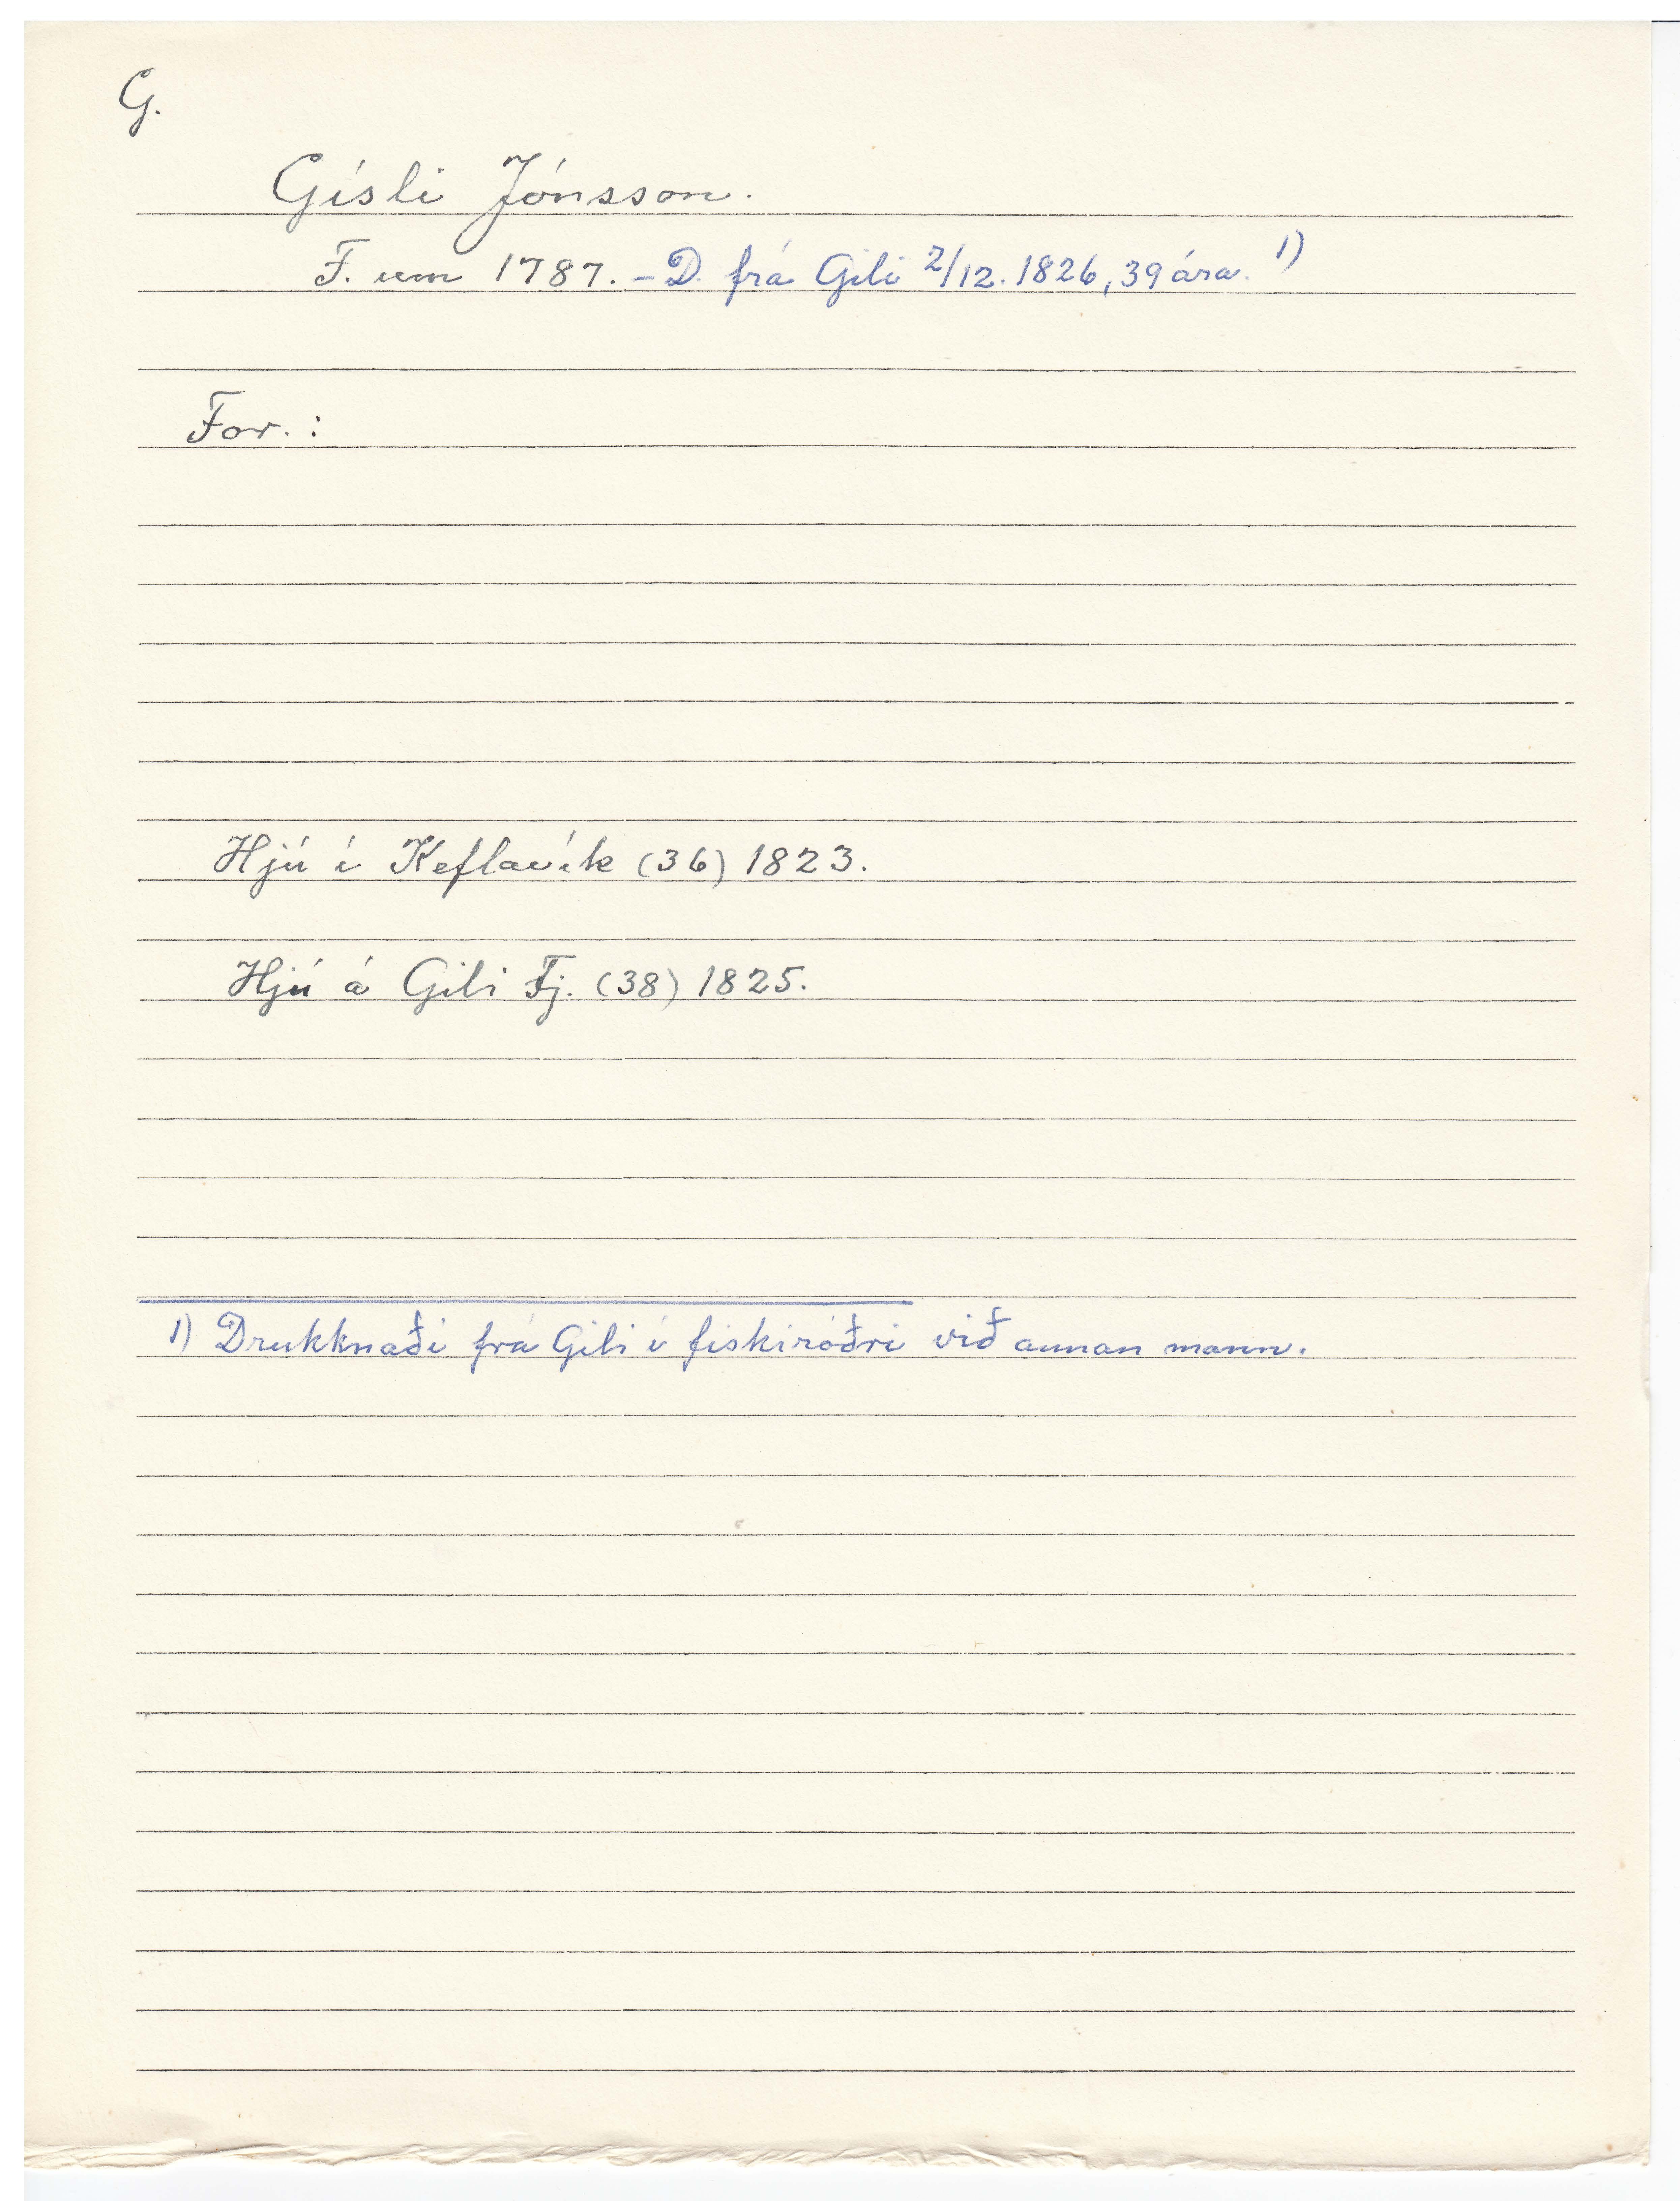 G.
Gísli Jónsson.
F. um 1787. – D. frá Gili 2/12. 1826, 39 ára. 1)
For. :
Hjú í Keflavík (36) 1823.
Hjú á Gili Fj. (38) 1825.
1) Drukknaði frá Gili í fiskiróðri við annan mann.